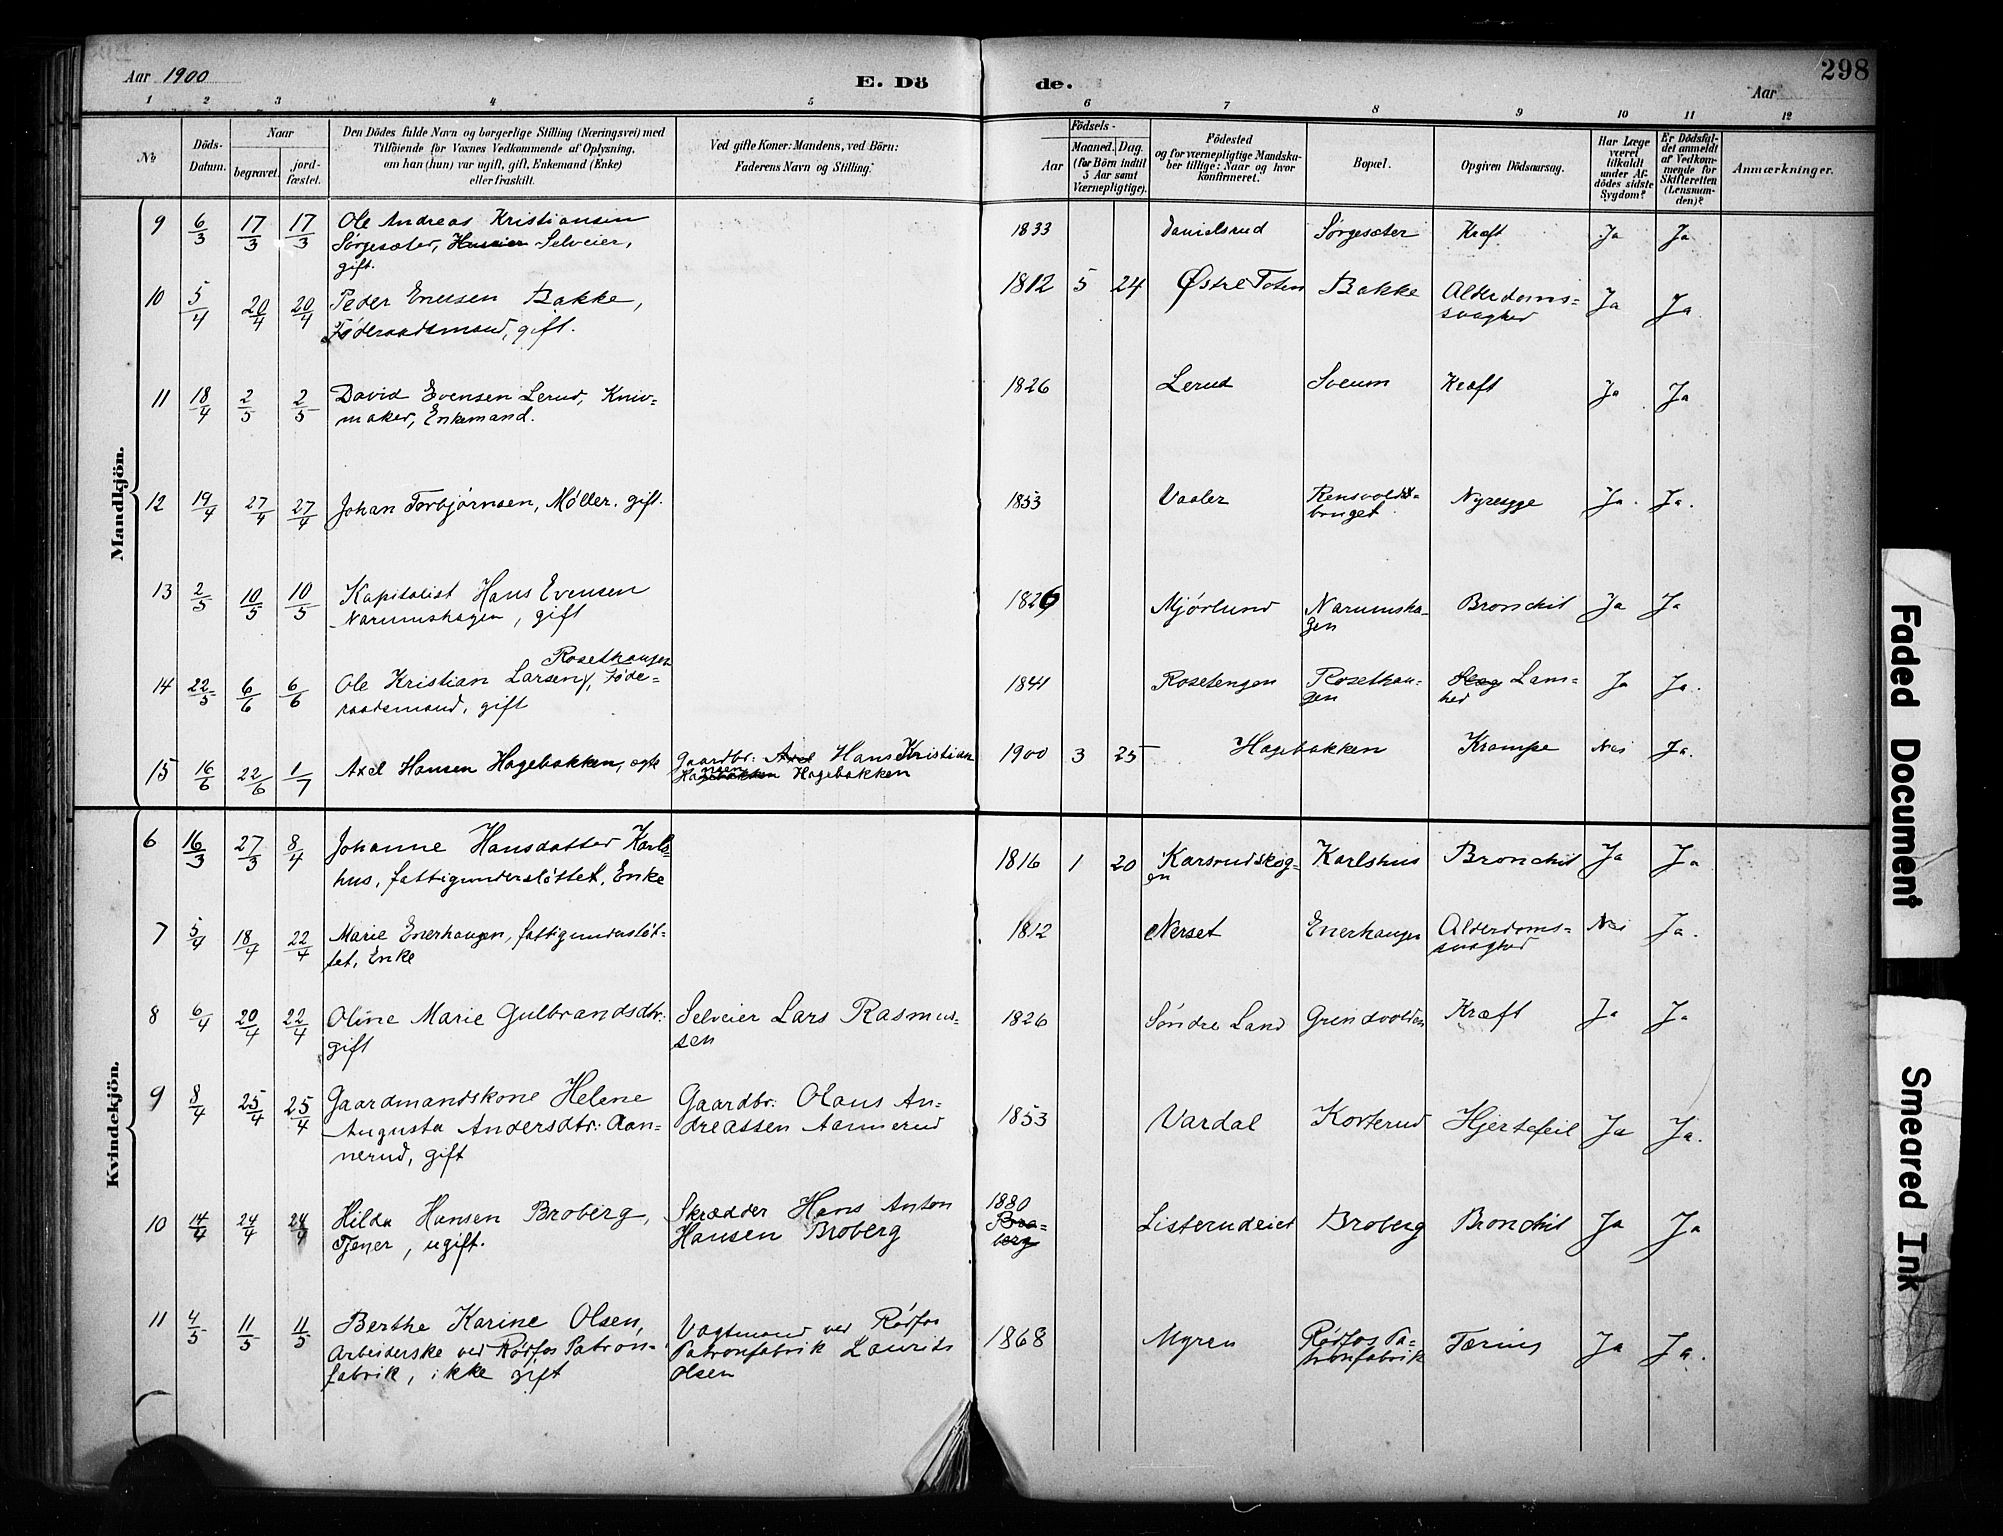 Aar 1900
E. Dö
de.
Aar
298
1 2 3 4 5 6 7 8 9 10 11 12
No
Döds-
Datum.
Naar
begravet.
jord-
fæstet.
Den Dödes fulde Navn og borgerlige Stilling (Næringsvei) med
Tilföiende for Voxnes Vedkommende af Oplysning,
om han (hun) var ugift, gift, Enkemand (Enke)
eller fraskilt.
Ved gifte Koner: Mandens, ved Börn:
Faderens Navn og Stilling.
Födsels-
Aar
Maaned. Dag.
(for Börn indtil
5 Aar samt
Værnepligtige).
Födested
og for værnepligtige Mandska-
ber tillige: Naar og hvor
konfirmeret.
Bopæl.
Opgiven Dödsaarsag.
Har Læge
været
tilkaldt
under Af-
dödes sidste
Sygdom?
Er Dödsfal-
det anmeldt
af Vedkom-
mende for
Skifteretten
(Lensman-
den)?
Anmærkninger.
Mandkjön.
9 6/3 17/3 17/3 Ole Andreas Kristiansen 1833 Danielsrud Sørgesæter Kræft Ja Ja
Sørgesæter, Selveier,
gift.
10 5/4 20/4 20/4 Peder Enersen Bakke, 1812 5 24 Østre Toten Bakke Alderdoms- Ja Ja
Føderaadsmand, gift. svaghed
11 18/4 2/5 2/5 David Evensen Lerud, Kniv- 1826 Lerud Sveum Kræft Ja Ja
maker, Enkemand.
12 19/4 27/4 27/4 Johan Torbjørnsen, Møller. gift. 1853 Vaaler Nyresyge Ja. Ja.
bruget
13 2/5 10/5 10/5 Kapitalist Hans Evensen 1826 Mjørlund Narumsha- Bronchit Ja Ja
Narumshagen, gift gen
Rosethaugen
14 22/5 6/6 6/6 Ole Kristian Larsen, Føde- 1844 Rosetengen Rosethau- Lam- Ja Ja.
raadsmand, gift gen hed
15 16/6 22/6 1/7 Axel Hansen Hagebakken, ægte Gaardbr: Axel Hans Kristian 1900 3 25 Hagebakken Krampe Nei Ja.
Hagebakken Hagebakken
Kvindekjön.
6 16/3 27/3 8/4 Johanne Hansdatter Karls- 1816 1 20 Karsrudskog- Karlshus Bronchit Ja Ja
hus, fattigunderstøttet, Enke en
7 5/4 18/4 22/4 Marie Enerhaugen, fattigunderstøt- 1812 Nerset Enerhaugen Alderdoms- Nei Ja.
tet, Enke svaghed
8 6/4 20/4 22/4 Oline Marie Gulbrandsdtr: Selveier Lars Rasmus- 1826 Søndre Land Grindvolden Kræft Ja Ja
gift sen
9 8/4 25/4 25/4 Gaardmandskone Helene Gaardbr: Olaus An- 1853 Vardal Korterud Hjertefeil Ja Ja.
Augusta Andersdtr: Aan- dreassen Aannerud
nerud, gift
10 14/4 24/4 24/4 Hilda Hansen Broberg, Skrædder Hans Anton 1880 Listerudeiet Broberg Bronchit Ja Ja
Tjener, ugift. Hansen Broberg Bro-
berg
11 4/5 11/5 11/5 Berthe Karine Olsen, Vagtmand ved Rødfos 1868 Myren Rødfos Pa- Tæring Ja Ja.
Arbeiderske ved Rødfos Patron- Patronfabrik Laurits tronfabrik
fabrik, ikke gift Olsen
Faded Document
Smeared Ink